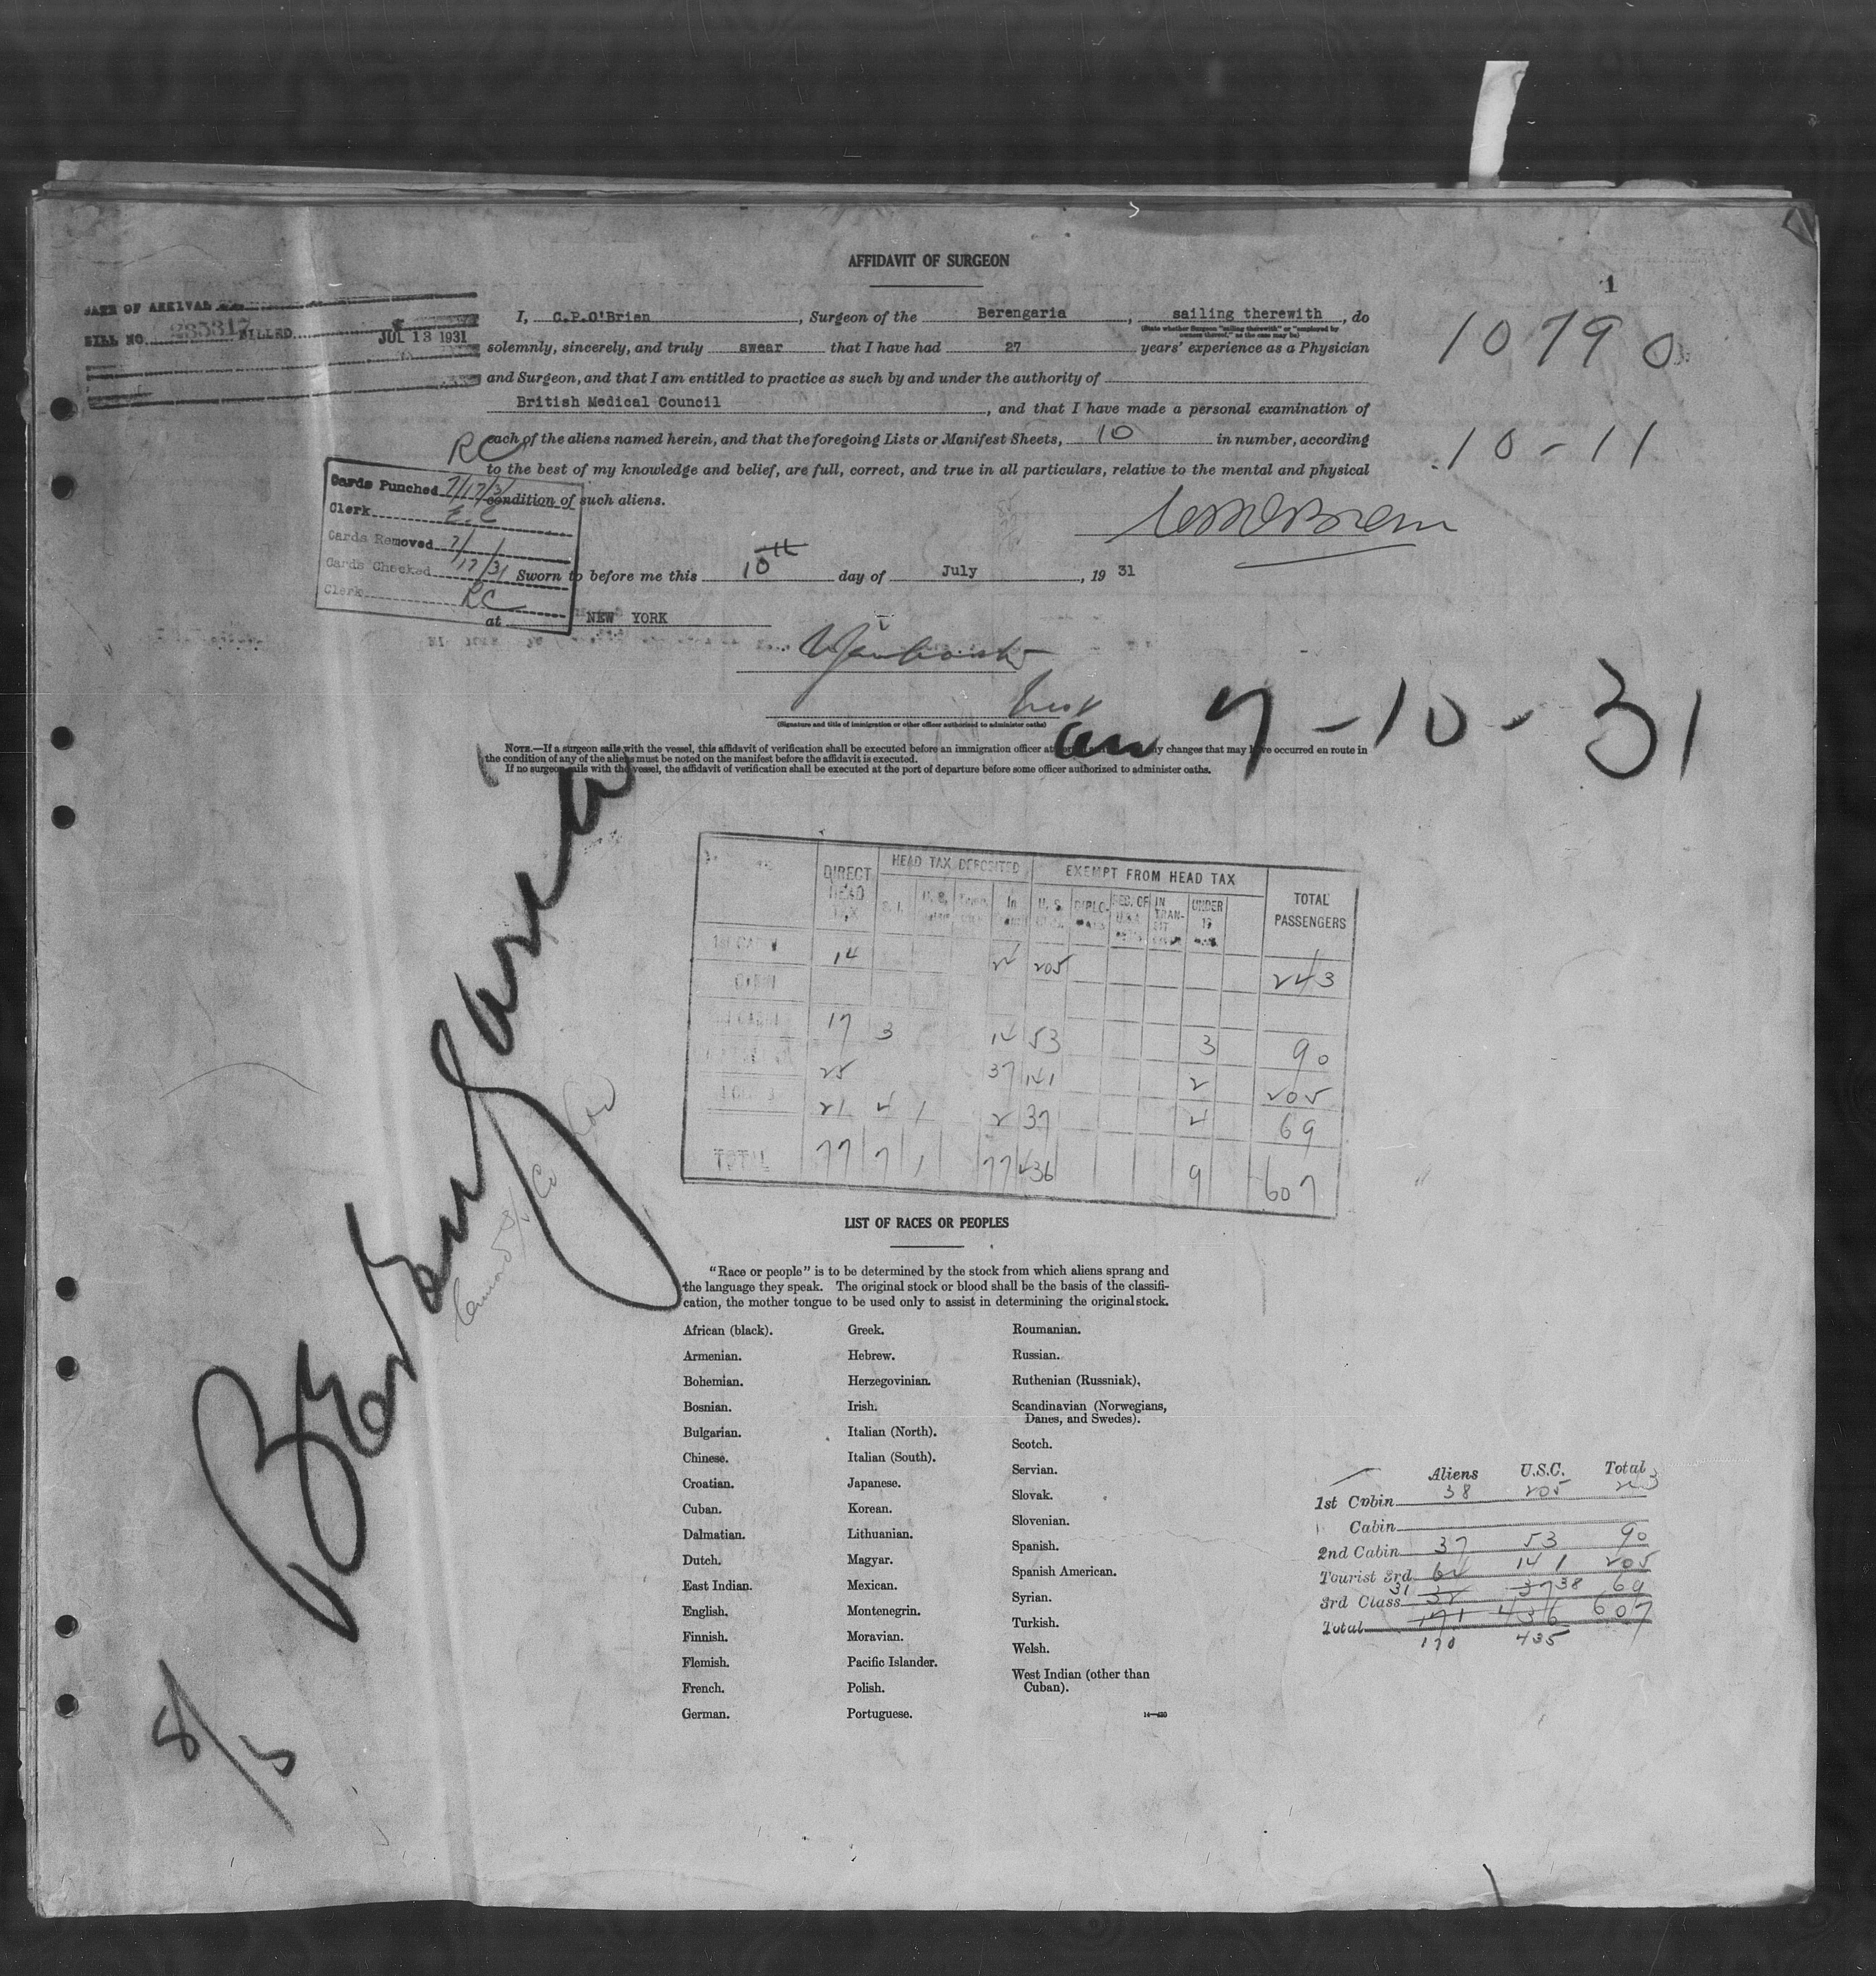 AFFIDAVIT OF SURGEON
1
DATE OF ARRIVAL
BILL NO. 285317 BILLED JUL 13 1931
I, C.P.O'Brien, Surgeon of the Berengaria, sailing therewith, do
(State whether Surgeon "sailing therewith" or "employed by owners thereof," as the case may be)
solemnly, sincerely, and truly swear that I have had 27 years' experience as a Physician
10790
and Surgeon, and that I am entitled to practice as such by and under the authority of
British Medical Council, and that I have made a personal examination of
each of the aliens named herein, and that the foregoing Lists or Manifest Sheets, 10 in number, according
10-11
to the best of my knowledge and belief, are full, correct, and true in all particulars, relative to the mental and physical
condition of such aliens.
RC
Cards Punched 7/17/31
Clerk E.C
Cards Removed 7/
Cards Checked 17/31
Clerk RC
Sworn to before me this 10th day of July, 19 31
at NEW YORK
Insp
(Signature and title of immigration or other officer authorized to administer oaths)
arr 7-10-31
NOTE.—If a surgeon sails with the vessel, this affidavit of verification shall be executed before an immigration officer at any changes that may have occurred en route in
the condition of any of the aliens must be noted on the manifest before the affidavit is executed.
If no surgeon sails with the vessel, the affidavit of verification shall be executed at the port of departure before some officer authorized to administer oaths.
Berengaria
8/5
DIRECT HEAD TAX HEAD TAX DEPOSITED EXEMPT FROM HEAD TAX TOTAL PASSENGERS
S. I. U. S. In U. S. DIPLO- IN TRAN- SIT UNDER
1st CABIN 14 24 205 243
CABIN
2nd CABIN 17 3 14 53 3 90
25 37 141 2 205
21 4 1 2 37 4 69
TOTAL 77 7 1 77 436 9 607
LIST OF RACES OR PEOPLES
"Race or people" is to be determined by the stock from which aliens sprang and
the language they speak. The original stock or blood shall be the basis of the classifi-
cation, the mother tongue to be used only to assist in determining the original stock.
African (black).
Armenian.
Bohemian.
Bosnian.
Bulgarian.
Chinese.
Croatian.
Cuban.
Dalmatian.
Dutch.
East Indian.
English.
Finnish.
Flemish.
French.
German.
Greek.
Hebrew.
Herzegovinian.
Irish.
Italian (North).
Italian (South).
Japanese.
Korean.
Lithuanian.
Magyar.
Mexican.
Montenegrin.
Moravian.
Pacific Islander.
Polish.
Portuguese.
Roumanian.
Russian.
Ruthenian (Russniak).
Scandinavian (Norwegians,
Danes, and Swedes).
Scotch.
Servian.
Slovak.
Slovenian.
Spanish.
Spanish American.
Syrian.
Turkish.
Welsh.
West Indian (other than
Cuban).
Aliens U.S.C. Total
1st Cabin 38 205 243
Cabin
2nd Cabin 37 53 90
Tourist 3rd 64 141 205
3rd Class 31 32 37 38 69
Total 171 436 607
170 435